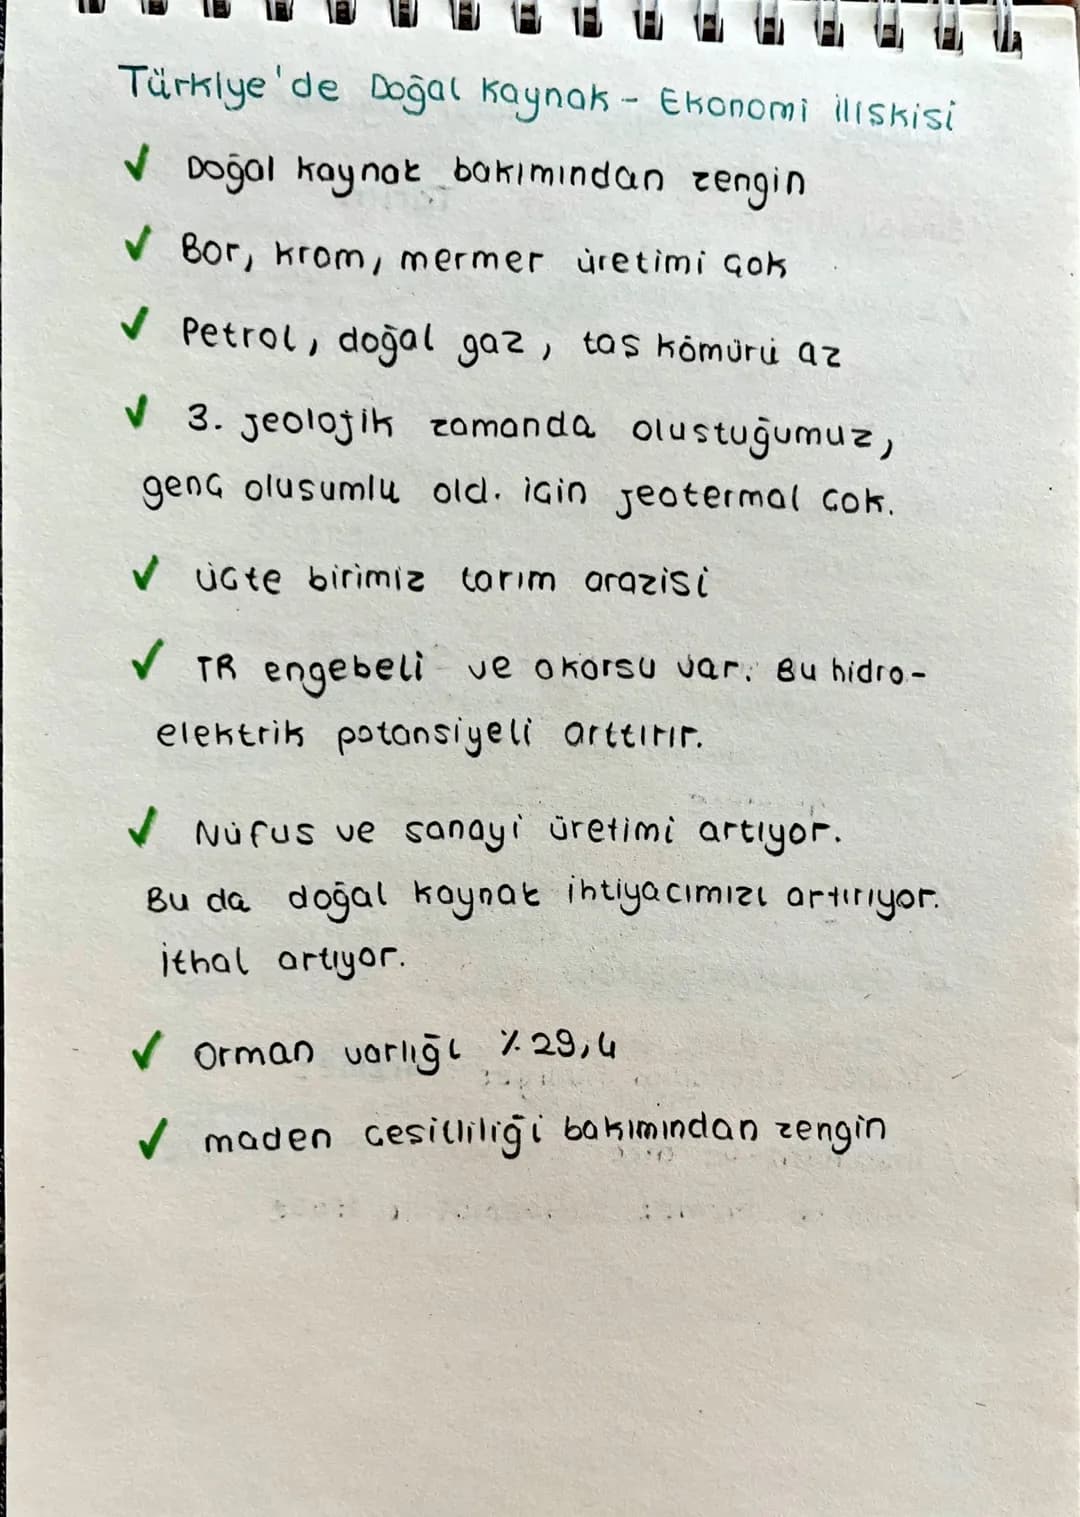 Türkiye'de Doğal Kaynak - Ekonomi iliskisi
✓ Doğal kaynak bakımından zengin
✓ Bor, krom, mermer üretimi çok
✓ Petrol, doğal gaz, tas kömürü az
✓ 3. jeolojik zamanda olustuğumuz,
genç olusumlu old. için jeotermal çok.
✓ üçte birimiz tarım arazisi
✓ TR engebeli ve akarsu var. Bu hidro-
elektrik potansiyeli arttırır.
✓ Nüfus ve sanayi üretimi artıyor.
Bu da doğal kaynak ihtiyacımızı artırıyor.
İthal artıyor.
✓ Orman varlığı %29,4
✓ maden cesitliliği bakımından zengin